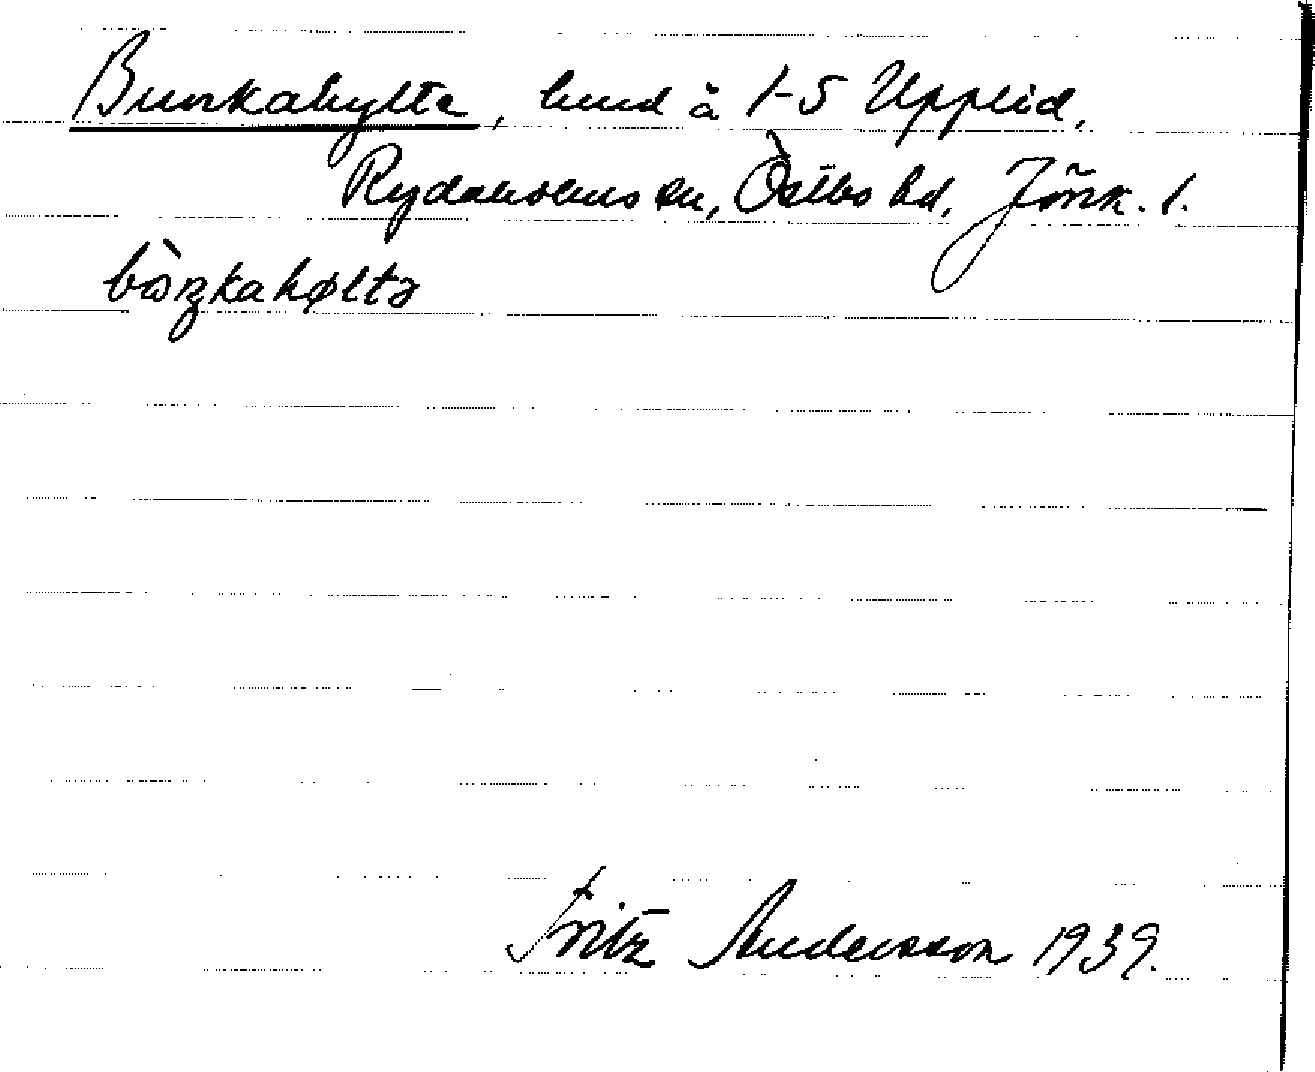 Bunkahylte, lund å 1-5 Upplid,
Rydaholms sn, Östbo hd, Jönk. l.
bòŋkahøltə
Fritz Andersson 1939.